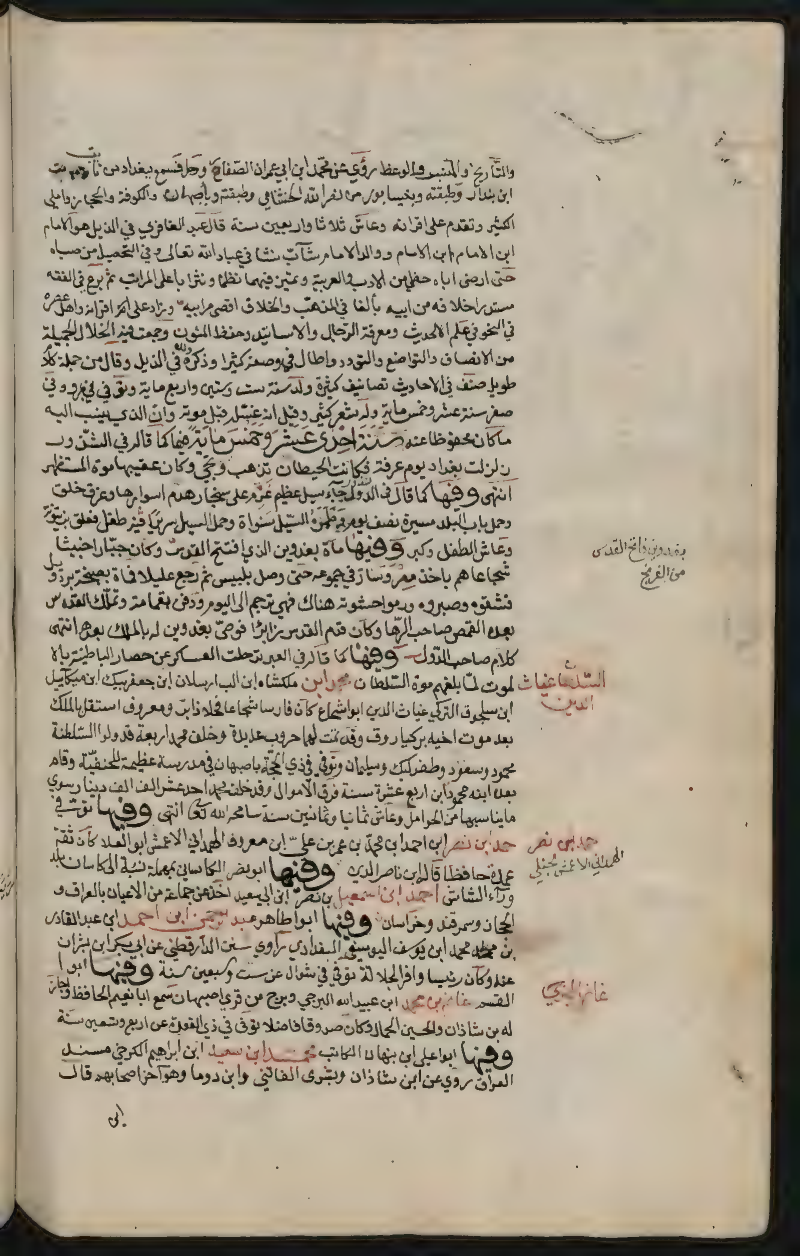 والتأريخ والمتنبه والوعظ روى عن محمد ابن ابي عمران الصفار وجماعة سمع ببغداد من ثابت
ابن بندار وطبقته وبنيسابور من نصر الله الخشنامي وطبقته وباصبهان والكوفة والحجاز واملى
الكثير وتقدم على اقرانه وعاش ثلاثا واربعين سنة قال عبد الغافر في الذيل هو الامام
ابن الامام ابن الامام ووالد الامام شاب نشا في عباد الله تعالى وفي التحصيل من صباه
حتى ارضى اباه حظي من الادب والعربية وتميز فيهما نظما ونثرا باعلى المراتب ثم برع في الفقه
مستدرا خلافه من ابيه بالغا في المذهب والخلاف اقصى مراتبه وزاد على اكثر اقرانه واهل عصره
في النحو في علم الحديث ومعرفة الرجال والاسانيد وحفظ المتون وجمعت فيه الخلال الجميلة
من الانصاف والتواضع والتودد واطال في وصفه كثيرا وذكره في الذيل وقال من جملة كلام
طويل صنف في الاحاديث تصانيف كثيرة ولد سنة ست وستين واربع ماية وتوفي في مرو في
صفر سنة عشر وخمس ماية وله شعر كثير وقيل انه غسله قبل موته وان الذي ينسب اليه
ما كان محفوظا عنه سنة احدى عشر وخمس ماية فيها كما قال في الشذور
زلزلت بغداد يوم عرفة فكانت الحيطان تذهب وتجي وكان عقيبها موت المستظهر
انتهى وفيها كما قال في الدول جاء سيل عظيم عرم على سنجار هدم اسوارها وغرق خلق
وحمل باب البلد مسيرة نصف يوم وطمره السيل سنوات وحمل السيل سريرا فيه طفل فعلق بزيتونة
وعاش الطفل وكبر وفيها مات بغدوين الذي افتتح القدس وكان جبارا خبيثا
شجاعا هم باخذ مصر وسار في جموعه حتى وصل بلبيس ثم رجع عليلا فمات بسبخة بردويل
فشقوه وصبروه ورموا حشوته هناك فهي ترجم الى اليوم ودفن بقمامة وتملك القدس
بعده القمص صاحب الرها وكان قدم القدس زائرا فوصى بغدوين له بالملك بعده انتهى
كلام صاحب الدول وفيها كما قال في العبر ترحلت العساكر عن حصار الباطنية بالا
لموت لما بلغهم موت السلطان محمد ابن ملكشاه ابن الب ارسلان ابن جعفر بيك ابن ميكائيل
ابن سلجوق التركي غياث الدين ابو شجاع كان فارسا شجاعا فحلا ذا بر ومعروف استقل بالملك
بعد موت اخيه بركياروق وقد تمت لهما حروب عديدة وخلف محمد اربعة قد ولوا السلطنة
محمود ومسعود وطغرلبك وسليمان وتوفي في ذي الحجة باصبهان في مدرسة عظيمة للحنفية وقام
بعده ابنه محمود ابن اربع عشرة سنة فرق الاموال وقد خلف محمد احد عشر الف الف دينار سوى
ما يناسبها من الحواصل وعاش ثمانيا وثمانين سنة سامحه الله تعالى انتهى وفيها توفي في
حمد بن نصر ابن احمد ابن محمد بن عمر بن علي ابن معروف الهمداني الاعمش ابو العلاء كان ثقة
عمدة حافظا قاله ابن ناصر الدين وفيها ابو نصر الكاساني بمهملة نسبة الى كاسان بلد
وراء الشاش احمد ابن اسمعيل بن نصر ابن ابي سعيد اخذ عن جماعة من الاعيان بالعراق و
الحجاز وسمرقند وخراسان وفيها ابو طاهر عبد الرحمن ابن احمد ابن عبد القادر
بن محمد ابن يوسف اليوسفي البغدادي راوي سنن الدارقطني عن ابي بكر ابن بشران
عنه وكان رئيسا وافر الجلالة توفي في شوال عن ست وسبعين سنة وفيها ابو ا
القسم غانم بن محمد ابن عبيد الله البرجي وبرج من قرى اصبهان سمع ابا نعيم الحافظ واجاز
له بن شاذان والحسين الجمال وكان صدوقا فاضلا توفي في ذي القعدة عن اربع وتسعين سنة
وفيها ابو علي ابن نبهان الكاتب محمد ابن سعيد ابن ابراهيم الكرخي مسند
العراق روى عن ابن شاذان وبشرى الفاتني وابن دوما وهو آخر اصحابهم قال
ابن
بغدوين فاتح القدس
من الفرنج
السلطان غياث
الدين
حمد بن نصر
الهمداني الاعمش الحنبلي
غانم البرجي